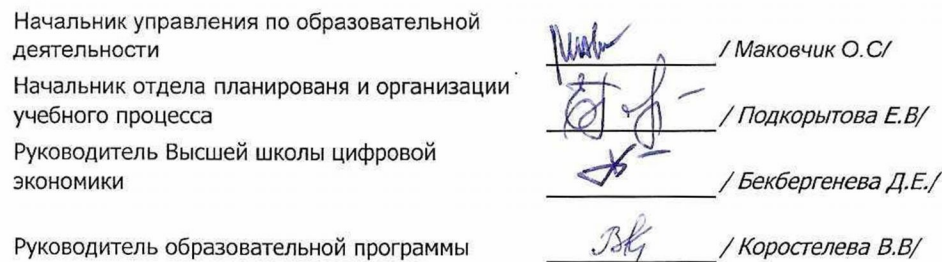 Начальник управления по образовательной
деятельности / Маковчик О.С/
Начальник отдела планированя и организации
учебного процесса / Подкорытова Е.В/
Руководитель Высшей школы цифровой
экономики / Бекбергенева Д.Е./
Руководитель образовательной программы / Коростелева В.В/